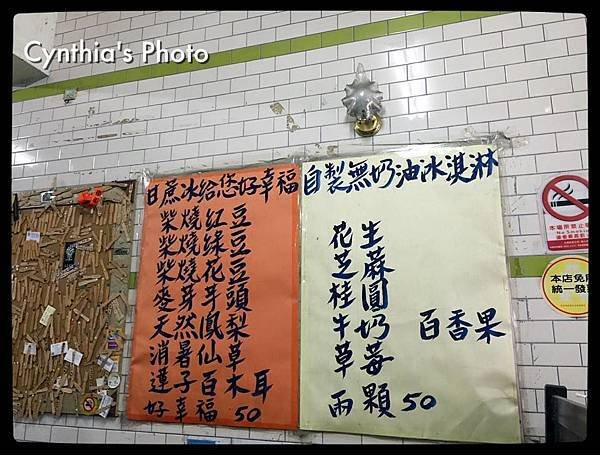 Cynthia's Photo
日蔗冰給您好幸福
柴燒紅豆
柴燒綠豆
柴燒花豆
麥芽芋頭
天然鳳梨
消暑仙草
蓮子百木耳
好幸福 50
自製無奶油冰淇淋
花生
芝蔴
桂圓
牛奶 百香果
草莓
兩顆50
本場所禁止吸菸
No Smoking
本店免用
統一發票